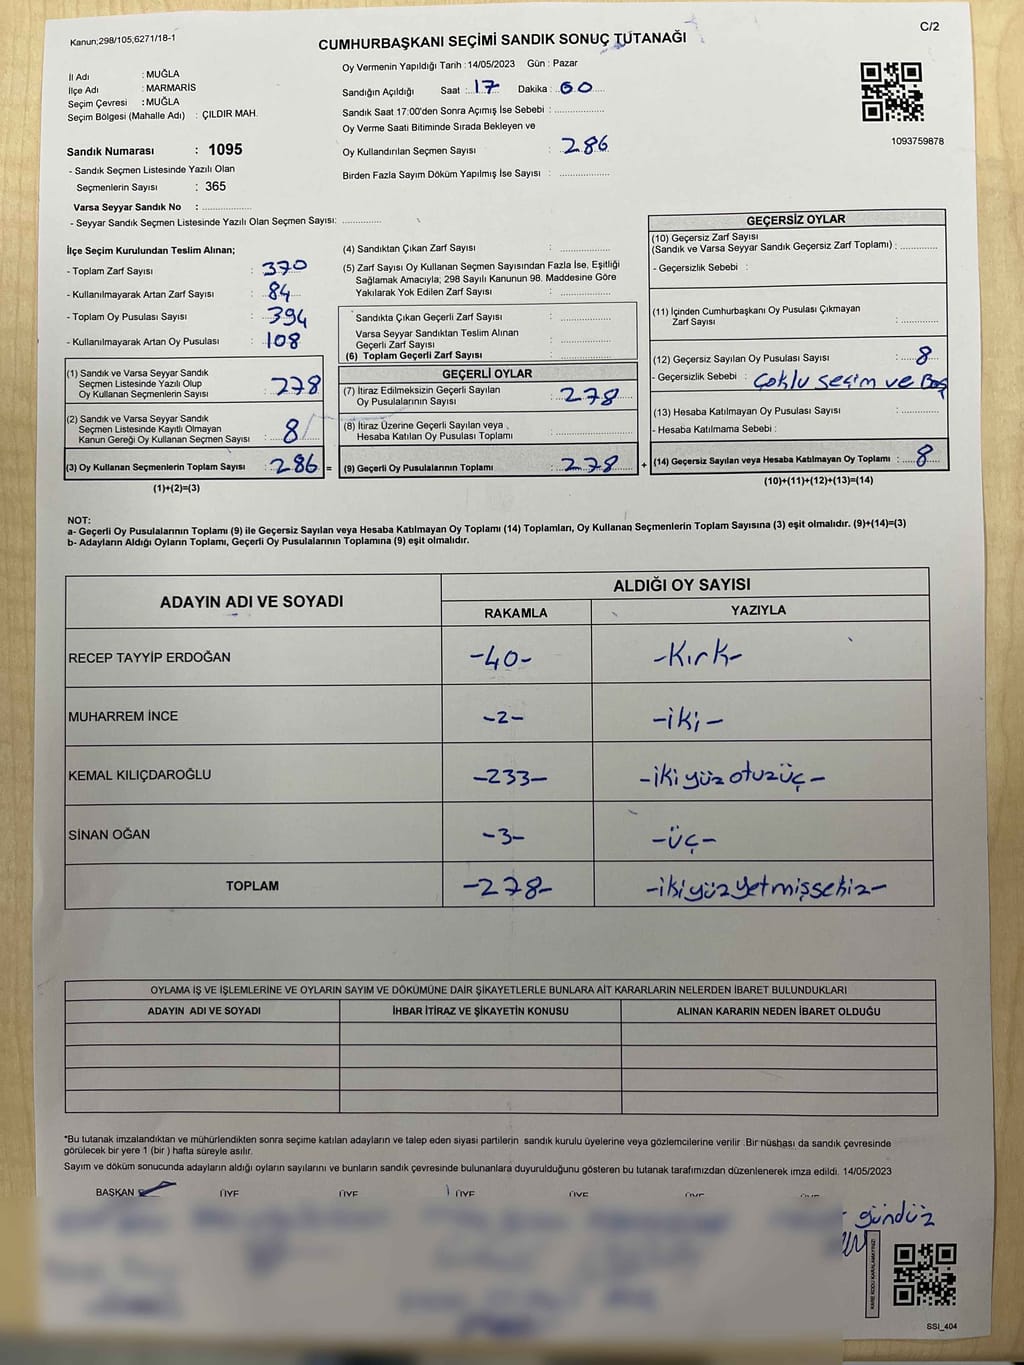 Kanun;298/105,6271/18-1
C/2
CUMHURBAŞKANI SEÇİMİ SANDIK SONUÇ TUTANAĞI
İl Adı : MUĞLA
İlçe Adı : MARMARİS
Seçim Çevresi : MUĞLA
Seçim Bölgesi (Mahalle Adı) : ÇILDIR MAH.
Oy Vermenin Yapıldığı Tarih : 14/05/2023 Gün : Pazar
Sandığın Açıldığı Saat : 17 Dakika : 00
Sandık Saat 17:00'den Sonra Açımış İse Sebebi :
Oy Verme Saati Bitiminde Sırada Bekleyen ve
Oy Kullandırılan Seçmen Sayısı : 286
Birden Fazla Sayım Döküm Yapılmış İse Sayısı :
1093759878
Sandık Numarası : 1095
- Sandık Seçmen Listesinde Yazılı Olan
Seçmenlerin Sayısı : 365
Varsa Seyyar Sandık No :
- Seyyar Sandık Seçmen Listesinde Yazılı Olan Seçmen Sayısı:
İlçe Seçim Kurulundan Teslim Alınan;
- Toplam Zarf Sayısı : 370
- Kullanılmayarak Artan Zarf Sayısı : 84
- Toplam Oy Pusulası Sayısı : 394
- Kullanılmayarak Artan Oy Pusulası : 108
(1) Sandık ve Varsa Seyyar Sandık
Seçmen Listesinde Yazılı Olup
Oy Kullanan Seçmenlerin Sayısı : 278
(2) Sandık ve Varsa Seyyar Sandık
Seçmen Listesinde Kayıtlı Olmayan
Kanun Gereği Oy Kullanan Seçmen Sayısı : 8
(3) Oy Kullanan Seçmenlerin Toplam Sayısı : 286 =
(1)+(2)=(3)
(4) Sandıktan Çıkan Zarf Sayısı :
(5) Zarf Sayısı Oy Kullanan Seçmen Sayısından Fazla İse, Eşitliği
Sağlamak Amacıyla; 298 Sayılı Kanunun 98. Maddesine Göre
Yakılarak Yok Edilen Zarf Sayısı :
Sandıkta Çıkan Geçerli Zarf Sayısı :
Varsa Seyyar Sandıktan Teslim Alınan
Geçerli Zarf Sayısı :
(6) Toplam Geçerli Zarf Sayısı :
GEÇERLİ OYLAR
(7) İtiraz Edilmeksizin Geçerli Sayılan
Oy Pusulalarının Sayısı : 278
(8) İtiraz Üzerine Geçerli Sayılan veya
Hesaba Katılan Oy Pusulası Toplamı :
(9) Geçerli Oy Pusulalarının Toplamı : 278 +
GEÇERSİZ OYLAR
(10) Geçersiz Zarf Sayısı
(Sandık ve Varsa Seyyar Sandık Geçersiz Zarf Toplamı) :
- Geçersizlik Sebebi :
(11) İçinden Cumhurbaşkanı Oy Pusulası Çıkmayan
Zarf Sayısı :
(12) Geçersiz Sayılan Oy Pusulası Sayısı : 8
- Geçersizlik Sebebi : Çoklu seçim ve Boş
(13) Hesaba Katılmayan Oy Pusulası Sayısı :
- Hesaba Katılmama Sebebi :
(14) Geçersiz Sayılan veya Hesaba Katılmayan Oy Toplamı : 8
(10)+(11)+(12)+(13)=(14)
NOT:
a- Geçerli Oy Pusulalarının Toplamı (9) ile Geçersiz Sayılan veya Hesaba Katılmayan Oy Toplamı (14) Toplamları, Oy Kullanan Seçmenlerin Toplam Sayısına (3) eşit olmalıdır. (9)+(14)=(3)
b- Adayların Aldığı Oyların Toplamı, Geçerli Oy Pusulalarının Toplamına (9) eşit olmalıdır.
ADAYIN ADI VE SOYADI
ALDIĞI OY SAYISI
RAKAMLA YAZIYLA
RECEP TAYYİP ERDOĞAN -40- -Kırk-
MUHARREM İNCE -2- -iki-
KEMAL KILIÇDAROĞLU -233- -iki yüz otuz üç-
SİNAN OĞAN -3- -üç-
TOPLAM -278- -iki yüz yetmiş sekiz-
OYLAMA İŞ VE İŞLEMLERİNE VE OYLARIN SAYIM VE DÖKÜMÜNE DAİR ŞİKAYETLERLE BUNLARA AİT KARARLARIN NELERDEN İBARET BULUNDUKLARI
ADAYIN ADI VE SOYADI İHBAR İTİRAZ VE ŞİKAYETİN KONUSU ALINAN KARARIN NEDEN İBARET OLDUĞU
*Bu tutanak imzalandıktan ve mühürlendikten sonra seçime katılan adayların ve talep eden siyasi partilerin sandık kurulu üyelerine veya gözlemcilerine verilir .Bir nüshası da sandık çevresinde
görülecek bir yere 1 (bir ) hafta süreyle asılır.
Sayım ve döküm sonucunda adayların aldığı oyların sayılarını ve bunların sandık çevresinde bulunanlara duyurulduğunu gösteren bu tutanak tarafımızdan düzenlenerek imza edildi. 14/05/2023
BAŞKAN ÜYE ÜYE ÜYE ÜYE ÜYE ÜYE
gündüz
KARE KODU KARALAMAYINIZ!
SSI_404